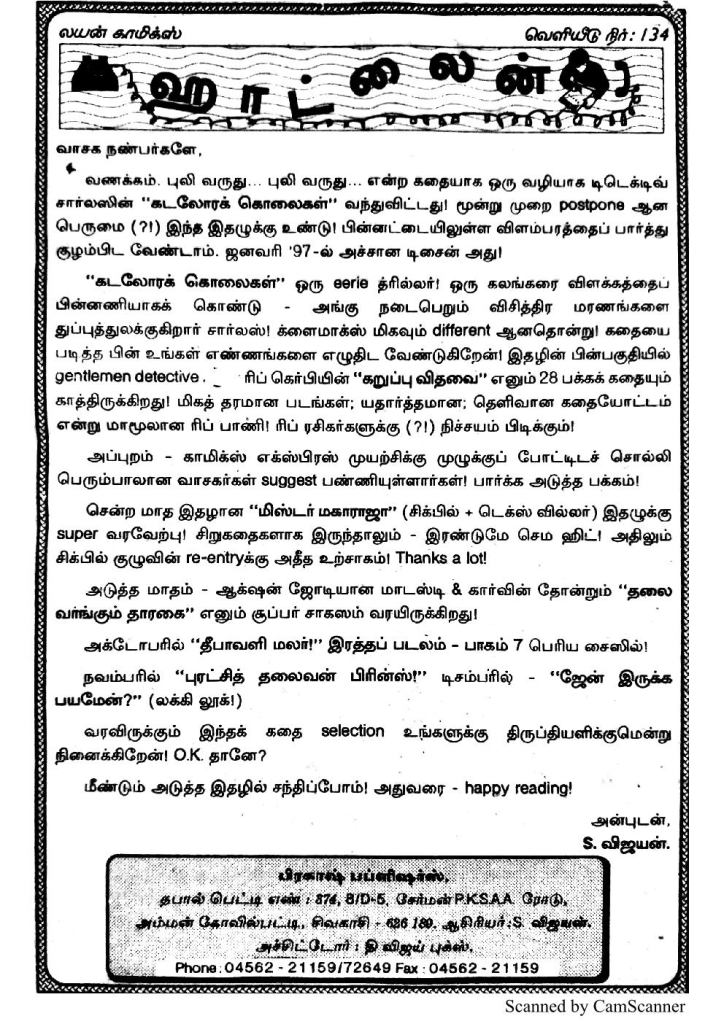 லயன் காமிக்ஸ் வெளியீடு நிர்: 134
ஹாட்லைன்
வாசக நண்பர்களே,
வணக்கம். புலி வருது... புலி வருது... என்ற கதையாக ஒரு வழியாக டிடெக்டிவ்
சார்லஸின் "கடலோரக் கொலைகள்" வந்துவிட்டது! மூன்று முறை postpone ஆன
பெருமை (?!) இந்த இதழுக்கு உண்டு! பின்னட்டையிலுள்ள விளம்பரத்தைப் பார்த்து
குழம்பிட வேண்டாம். ஜனவரி '97-ல் அச்சான டிசைன் அது!
"கடலோரக் கொலைகள்" ஒரு eerie த்ரில்லர்! ஒரு கலங்கரை விளக்கத்தைப்
பின்னணியாகக் கொண்டு - அங்கு நடைபெறும் விசித்திர மரணங்களை
துப்புத்துலக்குகிறார் சார்லஸ்! க்ளைமாக்ஸ் மிகவும் different ஆனதொன்று! கதையை
படித்த பின் உங்கள் எண்ணங்களை எழுதிட வேண்டுகிறேன்! இதழின் பின்பகுதியில்
gentlemen detective . ரிப் கெர்பியின் "கறுப்பு விதவை" எனும் 28 பக்கக் கதையும்
காத்திருக்கிறது! மிகத் தரமான படங்கள்; யதார்த்தமான; தெளிவான கதையோட்டம்
என்று மாமூலான ரிப் பாணி! ரிப் ரசிகர்களுக்கு (?!) நிச்சயம் பிடிக்கும்!
அப்புறம் - காமிக்ஸ் எக்ஸ்பிரஸ் முயற்சிக்கு முழுக்குப் போட்டிடச் சொல்லி
பெரும்பாலான வாசகர்கள் suggest பண்ணியுள்ளார்கள்! பார்க்க அடுத்த பக்கம்!
சென்ற மாத இதழான "மிஸ்டர் மகாராஜா" (சிக்பில் + டெக்ஸ் வில்லர்) இதழுக்கு
super வரவேற்பு! சிறுகதைகளாக இருந்தாலும் - இரண்டுமே செம ஹிட்! அதிலும்
சிக்பில் குழுவின் re-entryக்கு அதீத உற்சாகம்! Thanks a lot!
அடுத்த மாதம் - ஆக்ஷன் ஜோடியான மாடஸ்டி & கார்வின் தோன்றும் "தலை
வாங்கும் தாரகை" எனும் சூப்பர் சாகஸம் வரயிருக்கிறது!
அக்டோபரில் "தீபாவளி மலர்!" இரத்தப் படலம் - பாகம் 7 பெரிய சைஸில்!
நவம்பரில் "புரட்சித் தலைவன் பிரின்ஸ்!" டிசம்பரில் - "ஜேன் இருக்க
பயமேன்?" (லக்கி லூக்!)
வரவிருக்கும் இந்தக் கதை selection உங்களுக்கு திருப்தியளிக்குமென்று
நினைக்கிறேன்! O.K. தானே?
மீண்டும் அடுத்த இதழில் சந்திப்போம்! அதுவரை - happy reading!
அன்புடன்,
S. விஜயன்.
பிரகாஷ் பப்ளிஷர்ஸ்,
தபால் பெட்டி எண் : 374, 8/D-5, சேர்மன் P.K.S.A.A. ரோடு,
அம்மன் கோவில்பட்டி, சிவகாசி - 626 189. ஆசிரியர் :S. விஜயன்.
அச்சிட்டோர் : தி விஜய் புக்ஸ்.
Phone : 04562 - 21159/72649 Fax : 04562 - 21159
Scanned by CamScanner